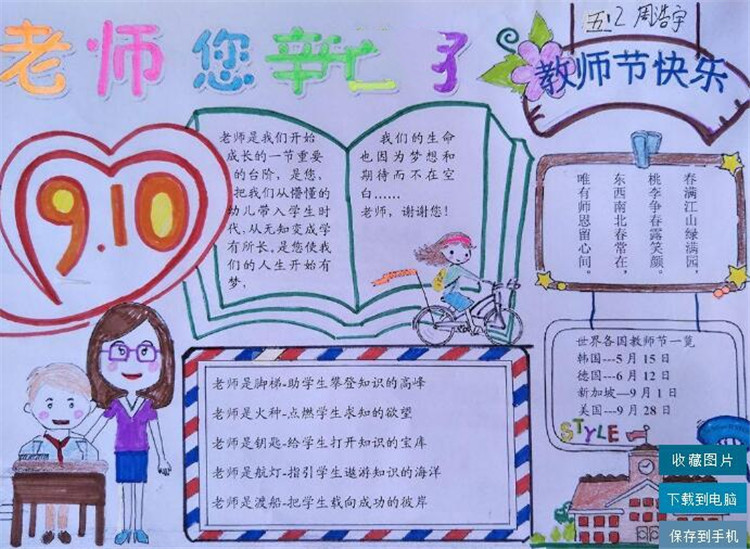 老师您辛苦了
五.2 周浩宇
教师节快乐
9.10
老师是我们开始
成长的一节重要
的台阶，是您，
把我们从懵懂的
幼儿带入学生时
代，从无知变成学
有所长。是您使我
们的人生开始有
梦，
我们的生命
也因为梦想和
期待而不在空
白……
老师，谢谢您！
春满江山绿满园，
桃李争春露笑颜。
东西南北春常在，
唯有师恩留心间。
世界各国教师节一览
韩国---5月15日
德国---6月12日
新加坡—9月1日
美国---9月28日
STYLE
老师是脚梯-助学生攀登知识的高峰
老师是火种-点燃学生求知的欲望
老师是钥匙-给学生打开知识的宝库
老师是航灯-指引学生遨游知识的海洋
老师是渡船-把学生载向成功的彼岸
收藏图片
下载到电脑
保存到手机